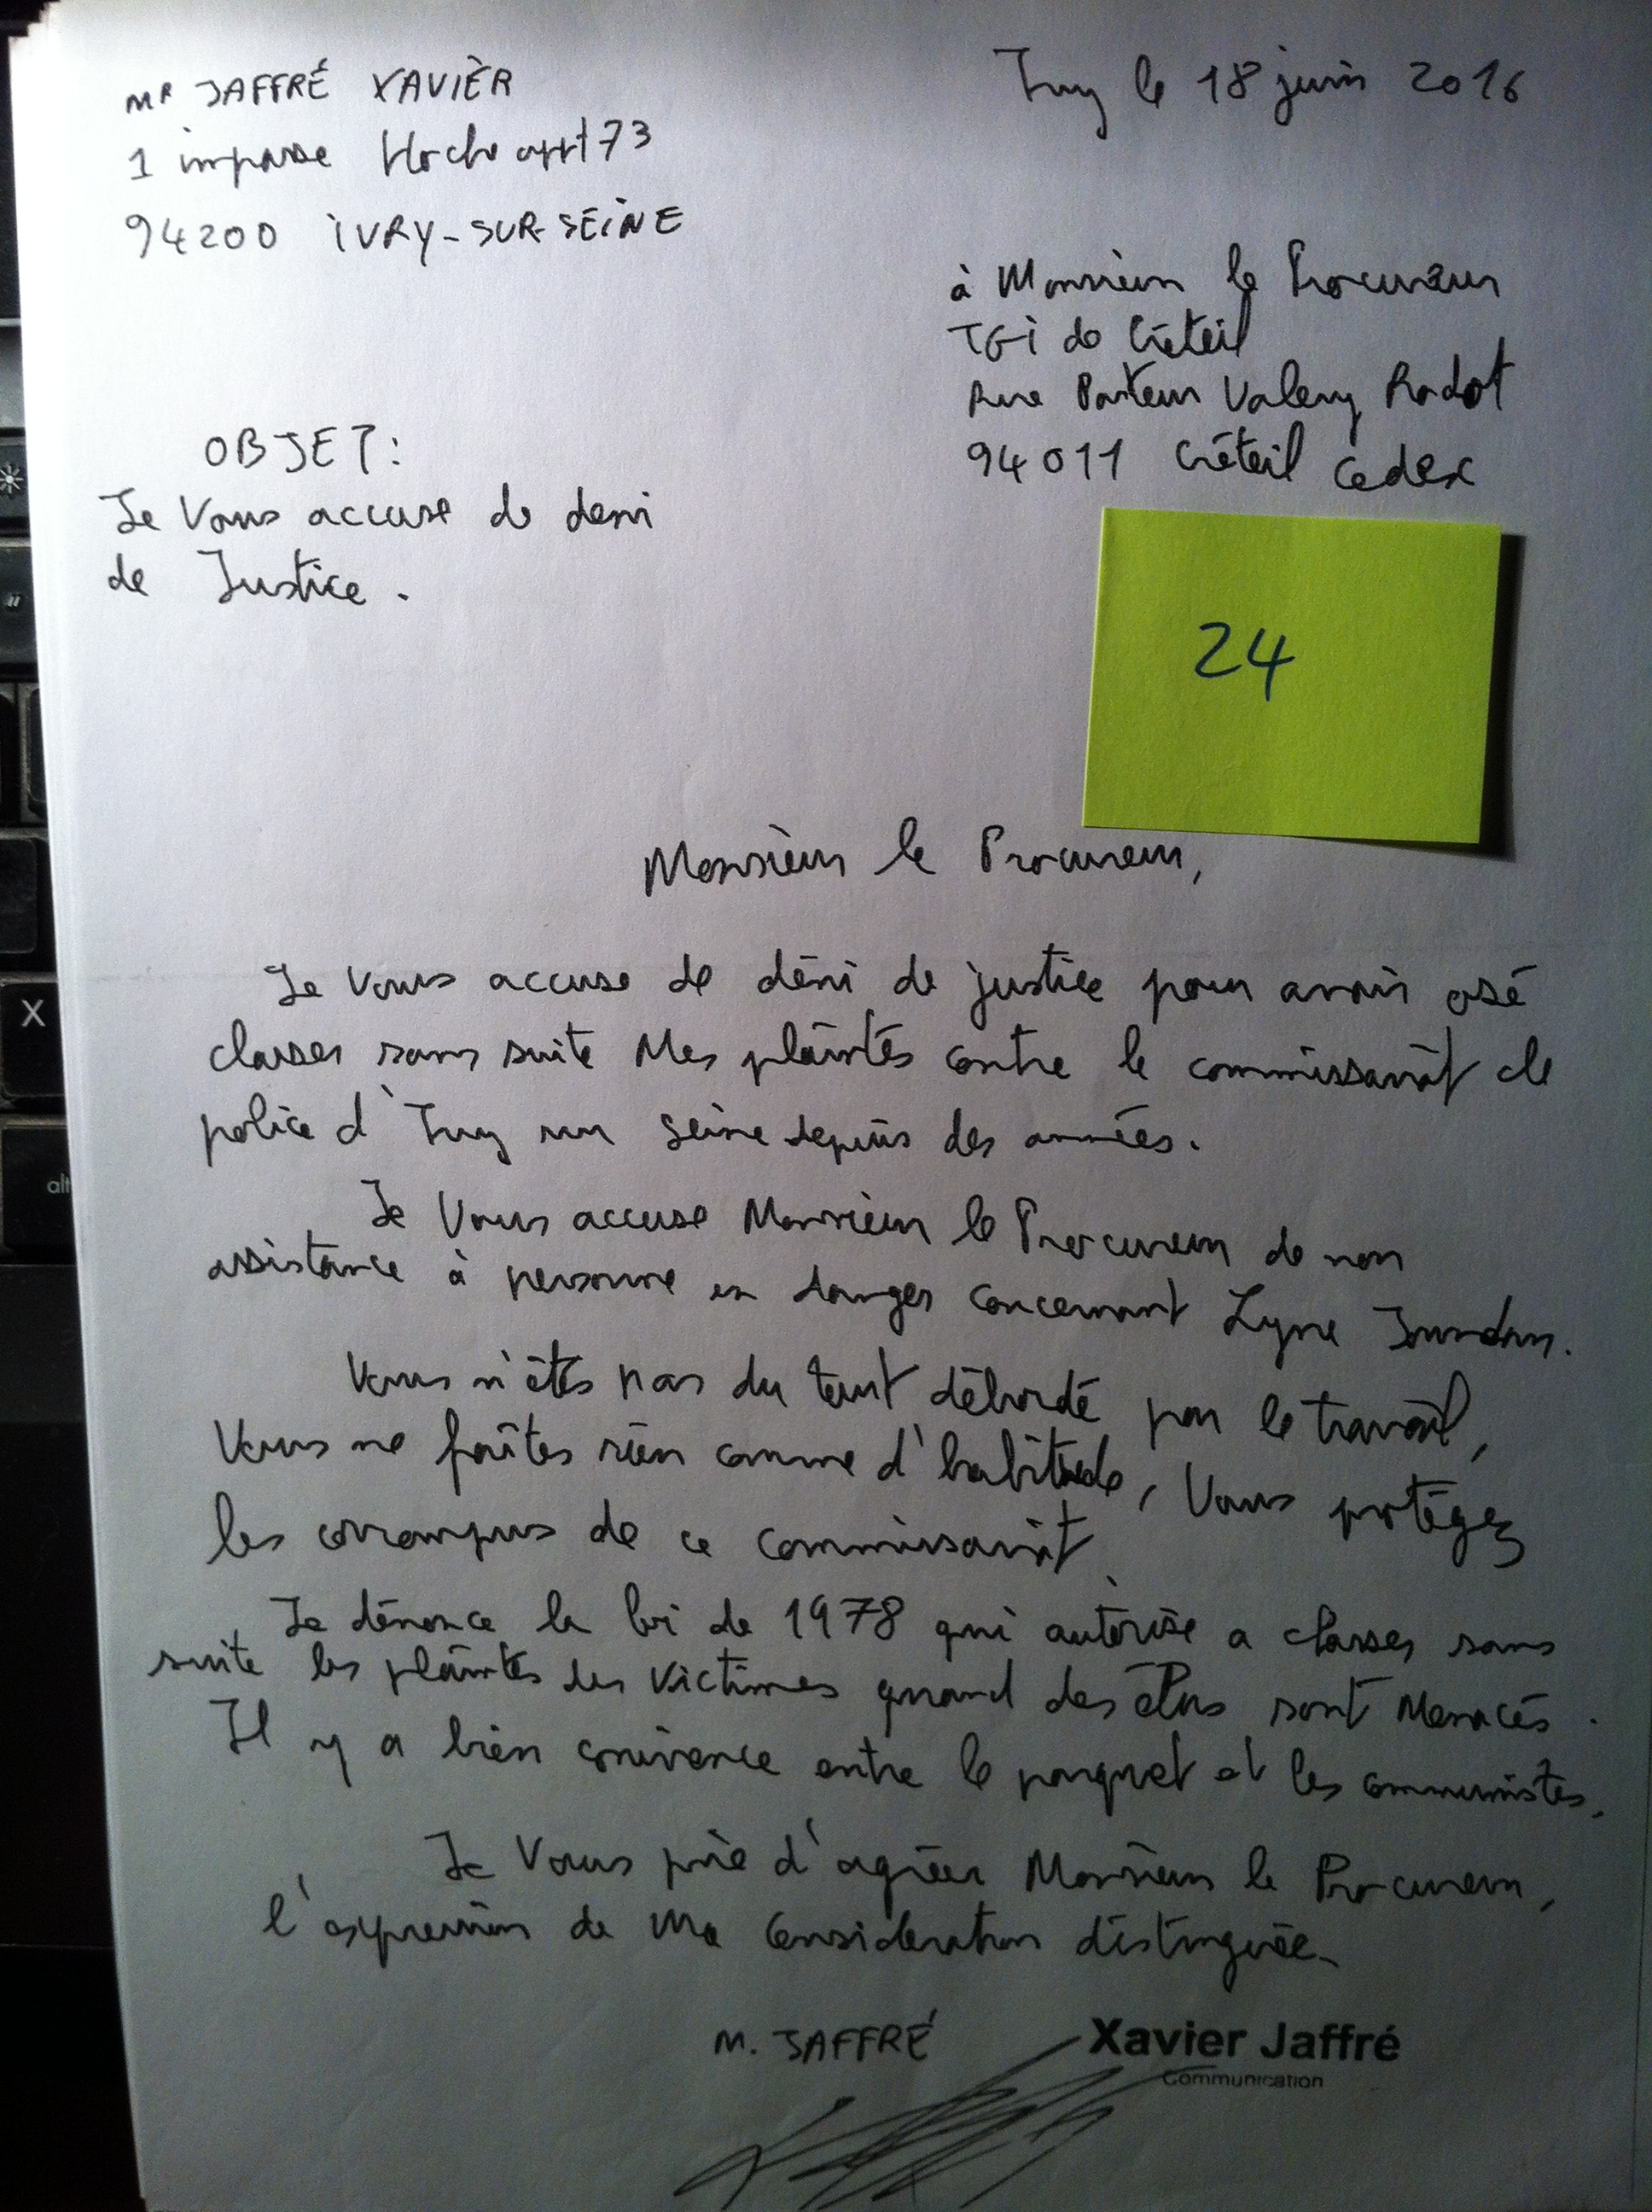 Mr JAFFRÉ XAVIÈR
1 impasse Hoche appt 73
94200 IVRY-SUR-SEINE
Ivry le 18 juin 2016
à Monsieur le Procureur
TGI de Créteil
Rue Pasteur Valery Radot
94011 Créteil Cedex
OBJET:
Je Vous accuse de deni
de Justice.
24
Monsieur le Procureur,
Je Vous accuse de déni de justice pour avoir osé
classer sans suite Mes plaintes contre le commissariat de
police d'Ivry sur Seine depuis des années.
Je Vous accuse Monsieur le Procureur de non
assistance à personne en danger concernant Lyne Jourdan.
Vous n'êtes pas du tout débordé par le travail,
Vous ne faîtes rien comme d'habitude, Vous protégez
les corrompus de ce commissariat.
Je dénonce la loi de 1978 qui autorise a classer sans
suite les plaintes des Victimes quand des élus sont Menacés.
Il y a bien conivence entre le parquet et les communistes.
Je Vous prie d'agréer Monsieur le Procureur,
l'expression de Ma Consideration distinguée.
M. JAFFRÉ
Xavier Jaffré
Communication